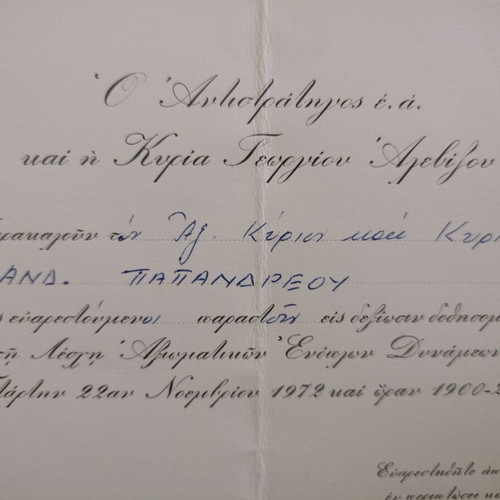 Ὁ Ἀντιστράτηγος ἐ.ἀ.
καί ἡ Κυρία Γεωργίου Ἀλεβίζου
τόν Ἀξ. Κύριον καί
ΑΝΔ. ΠΑΠΑΝΔΡΕΟΥ
εὐαρεστούμενοι παραστοῦν εἰς δεξίωσιν
Λέσχῃ Ἀξιωματικῶν Ἐνόπλων Δυνάμεων
22αν Νοεμβρίου 1972 καί ὥραν 1900-
Εὐαρεστηθῆτε